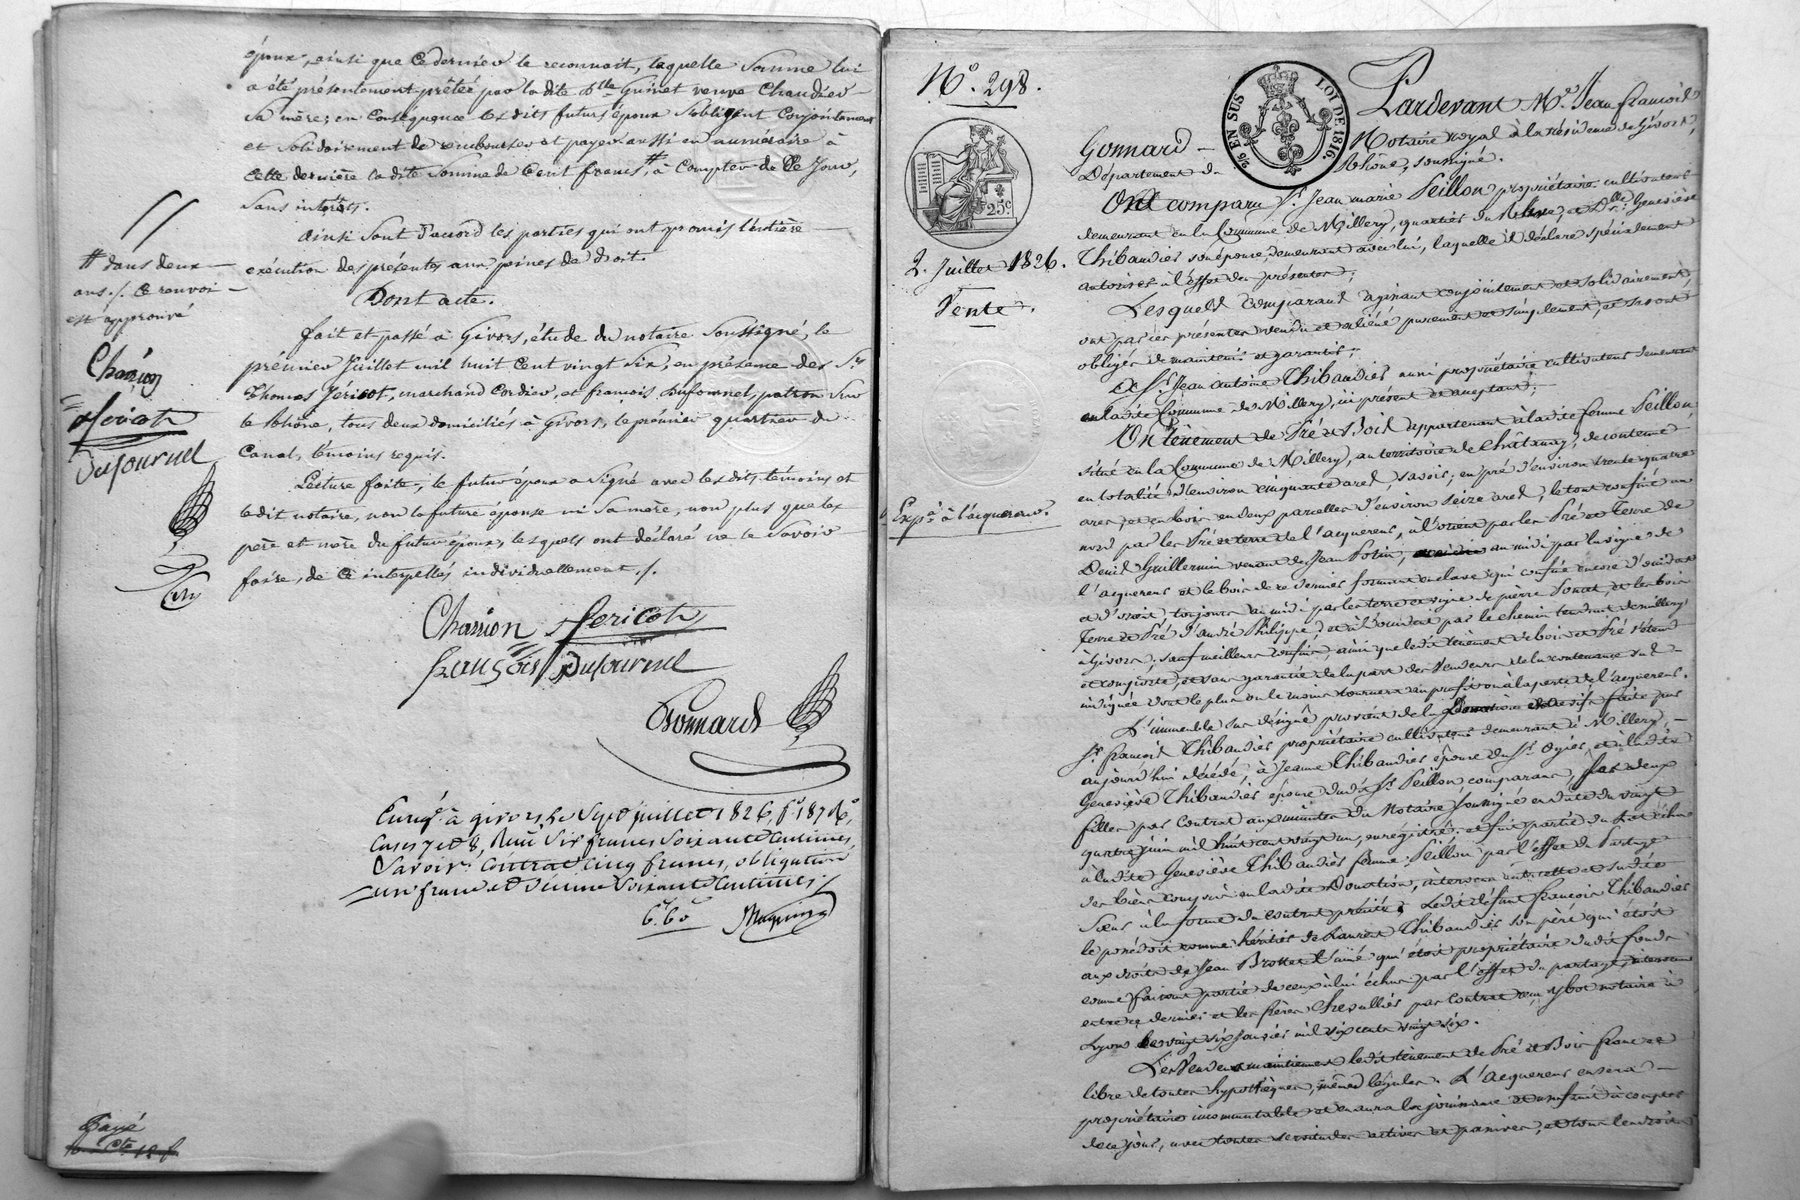 époux, ainsi que ce dernier le reconnait, laquelle somme lui
a été présentement prêtée par ladite dlle Guinet veuve Chaudier
sa mère; en conséquence lesdits futurs époux s'obligent conjointement
et solidairement de rembourser et payer aussi en numéraire à
cette dernière ladite somme de cent francs, # à compter de ce jour,
sans intérêts.
Ainsi sont d'accord les parties qui ont promis l'entière
exécution des présentes aux peines de droit.
Dont acte.
fait et passé à Givors, étude du notaire soussigné, le
prémier Juillet mil huit cent vingt six, en présence des Srs
Thomas Jéricot, marchand cordier, et françois Dufournel, patron sur
le Rhône, tous deux domiciliés à Givors, le prémier quartier du
Canal, témoins requis.
Lecture faite, le futur époux a signé avec lesdits témoins et
ledit notaire, non la future épouse ni sa mère, non plus que les
père et mère du futur époux, lesquels ont déclaré ne le savoir
faire, de ce interpellés individuellement ./.
# dans deux
ans ./. ce renvoi
est approuvé
Charion
Jericot
Dufournel
Charion Jericot
françois Dufournel
Gonnard
Enregé à givors le Sept juillet 1826, fo 187 Ro,
Cases 7 et 8, Reçu Six francs Soixante Centimes,
Savoir: Contrat cinq francs, obligation
un franc et dixième Soixante Centimes ./.
6f 60c
Payé
No. 298.
25c
2. Juillet 1826.
Vente.
Expon à l'acquereur.
96 EN SUS LOI DE 1816.
Pardevant Me Jean françois
Gonnard Notaire royal à la résidence de Givors,
Département du Rhône, soussigné.
Ont comparu Sr Jean marie Peillon propriétaire cultivateur
demeurant en la Commune de Millery, quartier du Rhône, et Dlle Geneviève
Thibaudier son épouse demeurant avec lui, laquelle il déclare spécialement
autoriser à l'effet des présentes;
Lesquels comparans agissant conjointement et solidairement,
ont par ces présentes vendu et aliéné purement et simplement, et seront
obligés de maintenir et garantir;
A Sr Jean antoine Thibaudier aussi propriétaire cultivateur demeurant
en ladite Commune de Millery, ici présent et acceptant;
Un tènement de Pré et Bois appartenant à ladite femme Peillon,
situé en la Commune de Millery, au territoire de Châtanay, de contenue
en totalité d'environ cinquante ares, savoir; en pré d'environ trente quatre
ares, et en bois en deux parcelles d'environ seize ares, le tout confiné au
nord par les Pré et terre de l'acquereur, à l'orient par les Pré et Terre de
Denis Guillermin venant de Jean Potin, au midi par la vigne de
l'acquereur et le bois de ce dernier formant enclave qui confine encore d'occident
et d'orient, toujours au midi par les terre et vigne de pierre Poncet, et les bois
Terre et Pré d'andré Philippe, et à l'occident par le chemin tendant de millery
à Givors; sauf meilleurs confins, ainsi que ledit tènement de bois et Pré s'étend
et comporte, et sans garantie de la part des Vendeurs de la contenance sus
indiquée dont le plus ou le moins tournera au profit ou à la perte de l'acquereur.
L'immeuble sus désigné provient de la Donation faite par
Sr françois Thibaudier propriétaire cultivateur demeurant à Millery,
aujourd'hui décédé, à Jeanne Thibaudier épouse du Sr Ogier, et à ladite
Geneviève Thibaudier épouse dudit Sr Peillon comparans, ses deux
filles par contrat aux minutes du Notaire soussigné en date du vingt
quatre juin mil huit cent vingt un, enregistré; et fait partie du lot échu
à ladite Geneviève Thibaudier femme Peillon par l'effet du Partage
des biens compris en ladite Donation, intervenu entre cette et sadite
Sœur à la forme du contrat précité. Ledit défunt françois Thibaudier
le possédoit comme héritier de Laurent Thibaudier son père qui étoit
aux droits de Jean Brottet l'ainé qui étoit propriétaire dudit fonds
comme faisant partie de ceux à lui échus par l'effet du partage, intervenu
entre ce dernier et les frères Chevallier par contrat reçu ybot notaire à
Lyon le vingt six janvier mil six cent vingt six.
Les Vendeurs maintiennent ledit tènement de Pré et Bois franc et
libre de toutes hypothèques, mêmes légales. L'acquereur en sera
propriétaire incommutable et en aura la jouissance et usufruit à compter
de ce jour, avec toutes servitudes actives et passives, et tous les droits